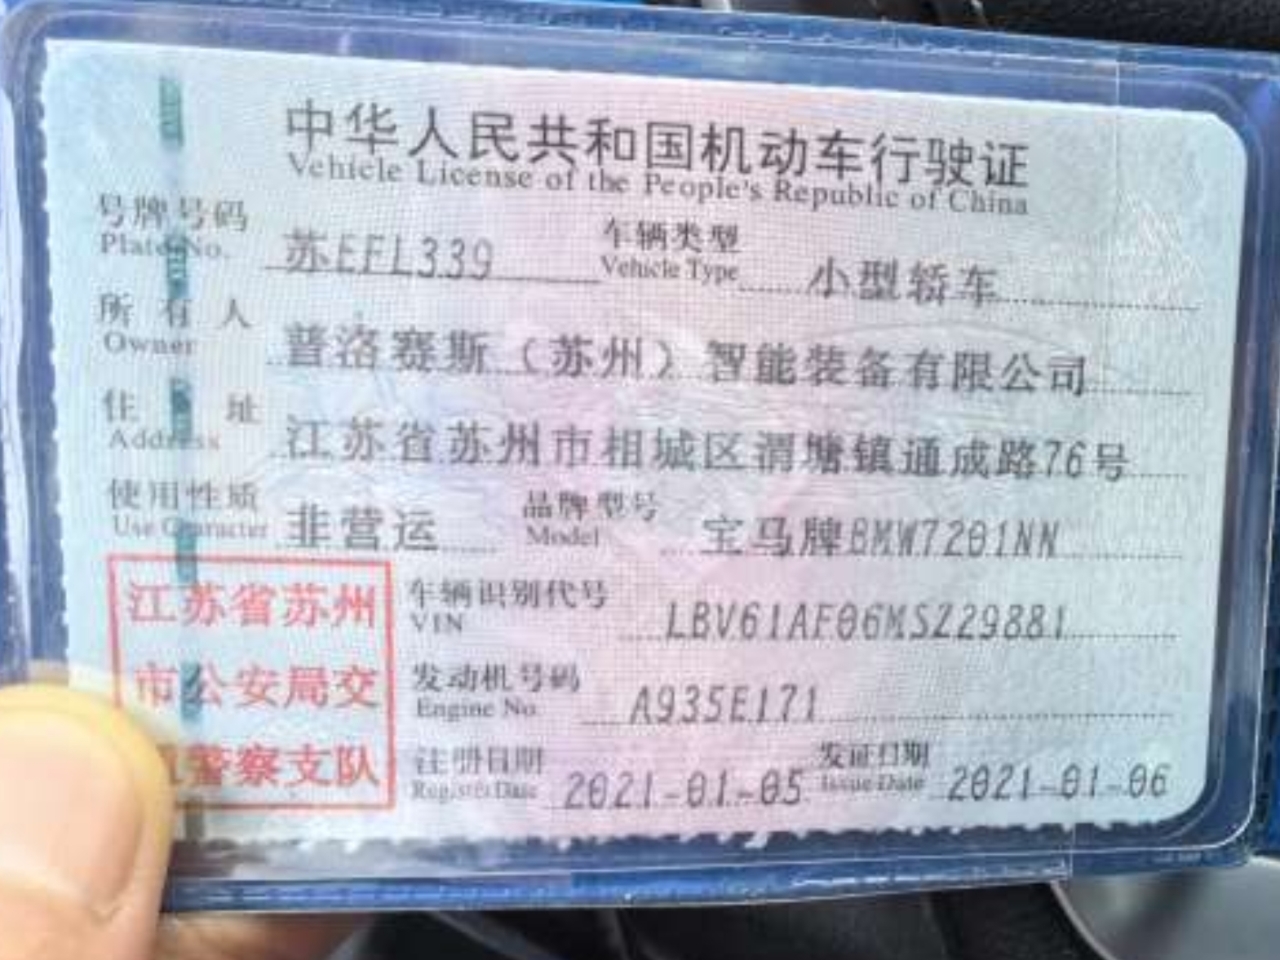 中华人民共和国机动车行驶证
Vehicle License of the People's Republic of China
号牌号码 苏EFL339 车辆类型 小型轿车
Plate No. Vehicle Type
所有人 普洛赛斯（苏州）智能装备有限公司
Owner
住址 江苏省苏州市相城区渭塘镇通成路76号
Address
使用性质 非营运 品牌型号 宝马牌BMW7201NN
Use Character Model
江苏省苏州 车辆识别代号 LBV61AF06MSZ29881
VIN
市公安局交 发动机号码 A935E171
Engine No.
警察支队 注册日期 2021-01-05 发证日期 2021-01-06
Register Date Issue Date